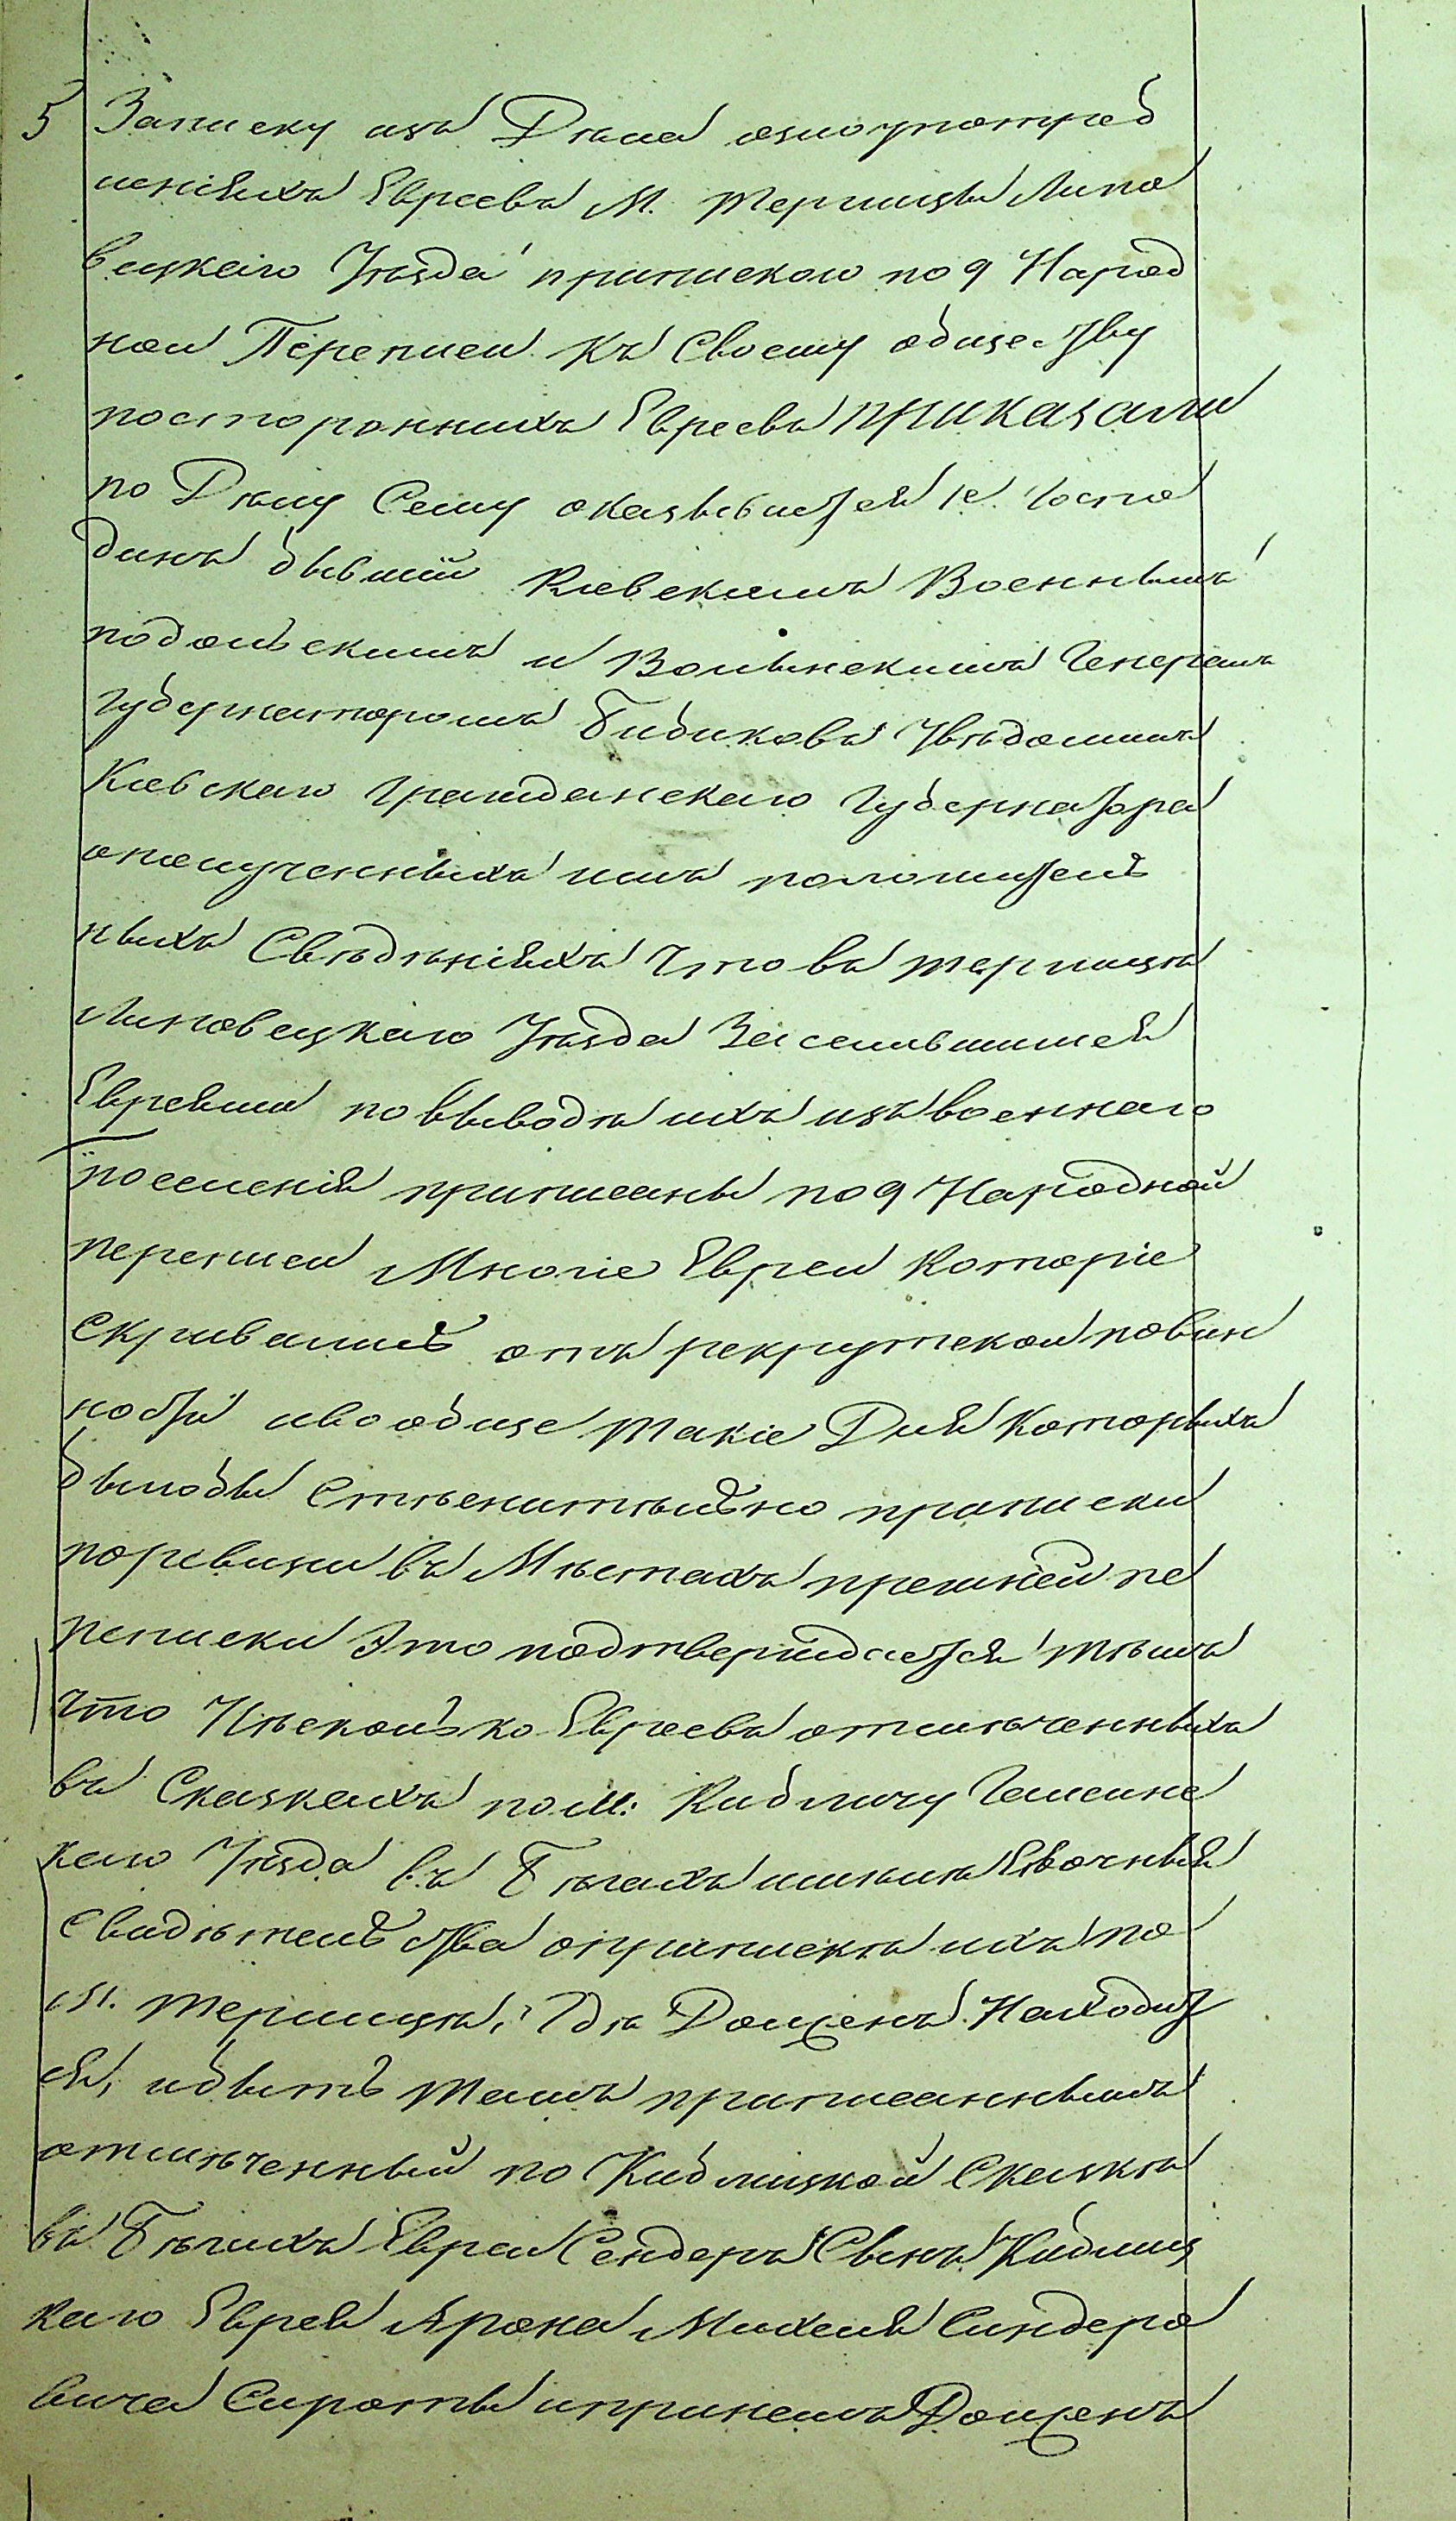 5 Записку изъ Дѣла озлоупотреб
леніяхъ Евреевъ М. Терлицы Липо
вецкаго Уѣзда припискою по 9 Народ
ной Переписи къ Своему обществу
постороннихъ Евреевъ приказали
по Дѣлу Сему оказывается 1е. Госпо
динъ бывшій Кіевскимъ Военнымъ
подольскимъ и Волынскимъ Генералъ
Губернаторомъ Бибиковъ Увѣдомилъ
Кіевскаго Гражданскаго Губернатора
ополученныхъ имъ положитель
ныхъ Свѣдѣніяхъ Что въ терлицѣ
Липовецкаго Уѣзда Заселившимся
Евреями по выводѣ ихъ изъ военнаго
поселенія приписаны по 9 Народной
переписи Многіе Евреи Которіе
Скривались отъ рекрутской повин
ности ивообще Такіе Для Которыхъ
былобы Стѣснительно приписки
поревизіи въ Мѣстахъ прежней пе
реписки Это подтверждается тѣмъ
что Нѣсколько Евреевъ отмѣченныхъ
въ Сказкахъ пом: Кибличу Гайсинс
каго Уѣзда въ Бѣгахъ имѣли Явочныя
Свидѣтельства оприпискѣ ихъ по
М. Терлицѣ, Гдѣ Долженъ Находит
ся, ибыть тамъ приписаннымъ
отмѣченный по Киблицкой Сказкѣ
въ Бѣгахъ Еврей Сендеръ Сынъ Киблиц
каго Еврея Арона Михеля Сендеро
вича Сироты иприемъ Долженъ